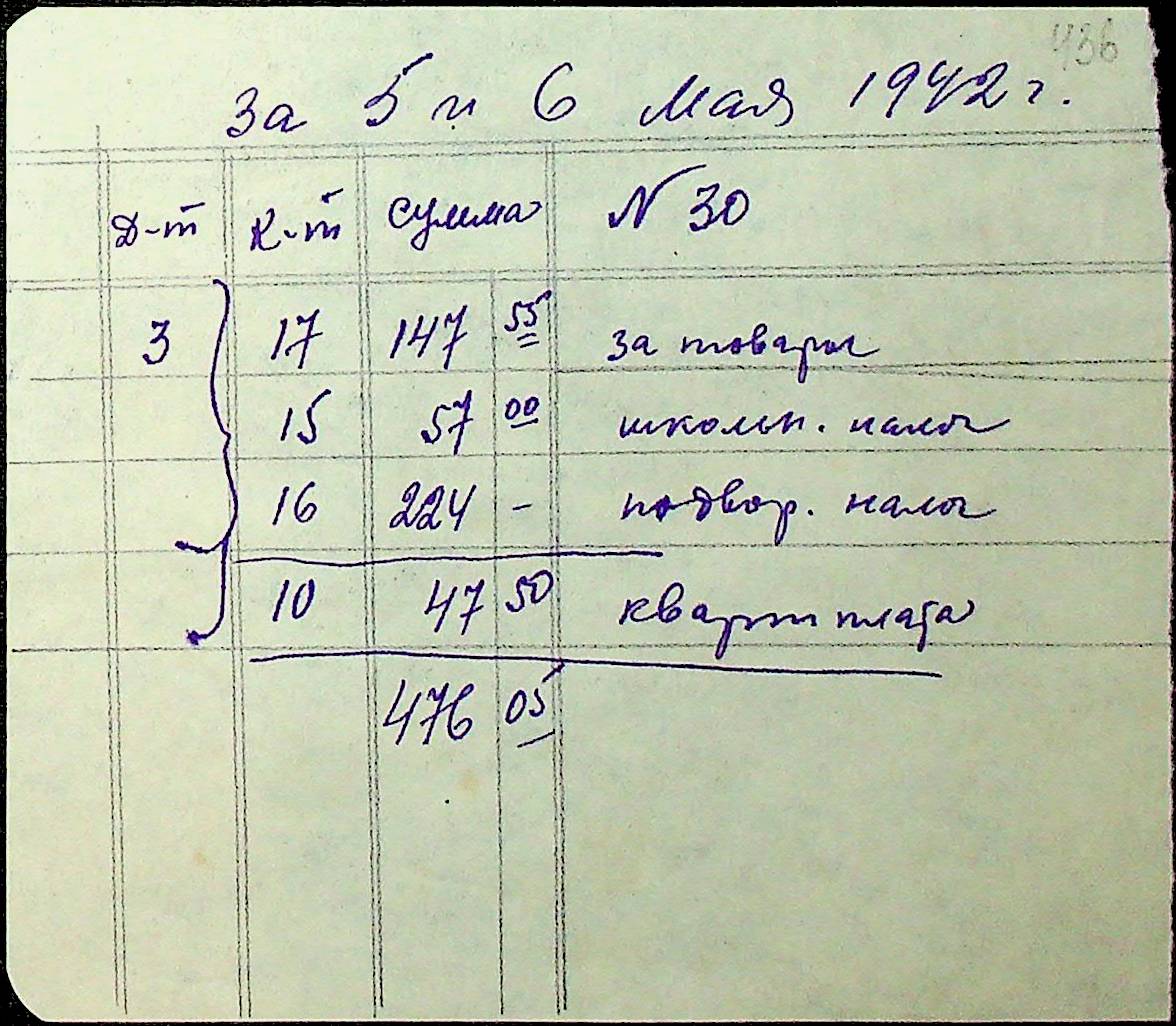 436
За 5 и 6 мая 1942 г.
Д-т К-т Сумма N 30
3 17 147 55 за товары
15 57 00 школьн. налог
16 224 - подвор. налог
10 47 50 квартплата
476 05